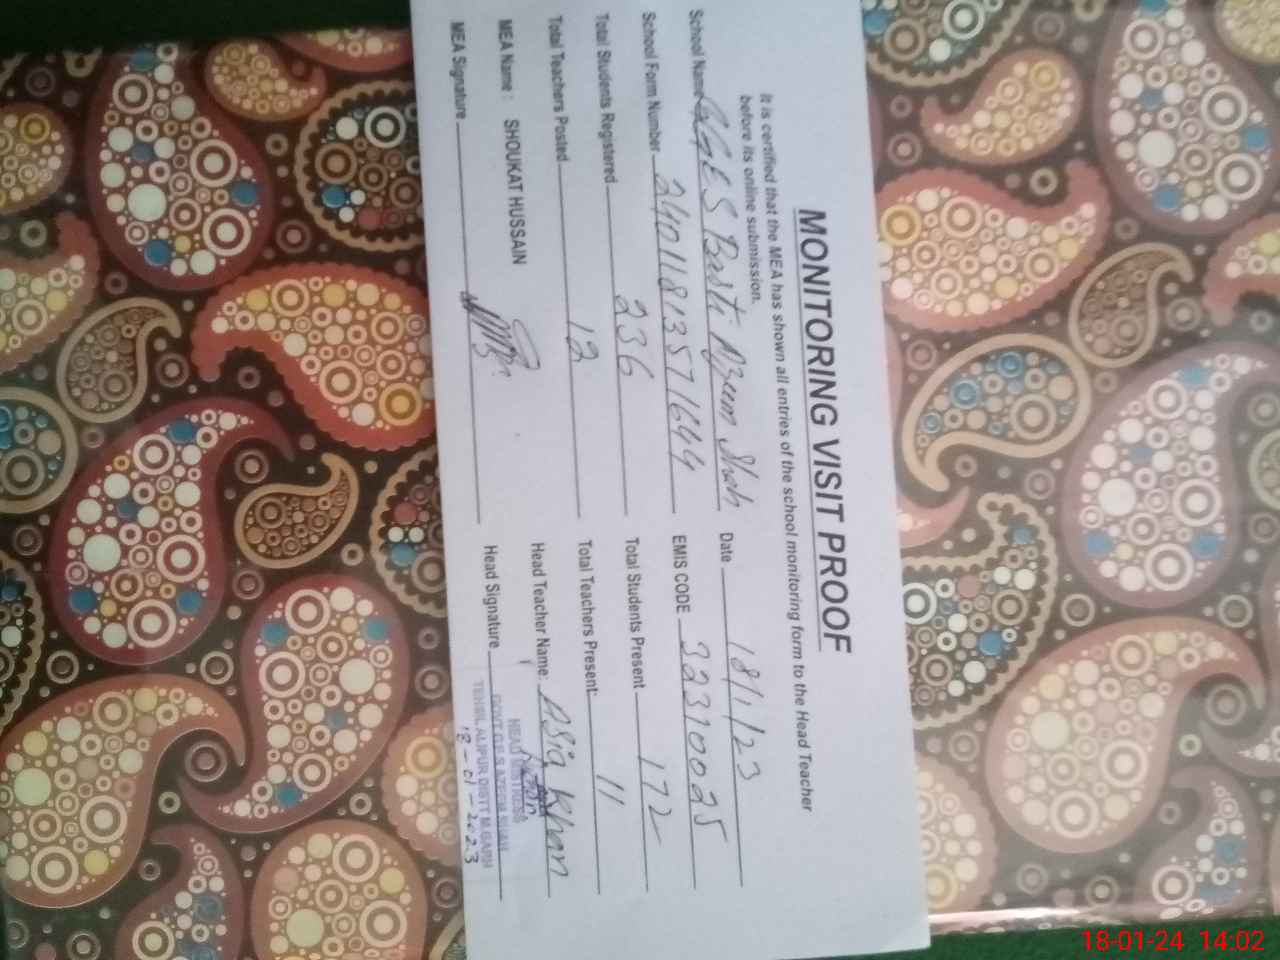 MONITORING VISIT PROOF
It is certified that the MEA has shown all entries of the school monitoring form to the Head Teacher
before its online submission.
School Name GGES Basti Azeem Shah Date 18/1/23
School Form Number 24011813571644 EMIS CODE 32310025
Total Students Registered 236 Total Students Present 172
Total Teachers Posted 12 Total Teachers Present: 11
MEA Name : SHOUKAT HUSSAIN Head Teacher Name: Asia Khan
MEA Signature Head Signature
HEAD MISTRESS
GOVT. G.E.S AZEEM SHAH
TEHSIL ALIPUR DISTT M.GARH
18-01-2023
18-01-24 14:02